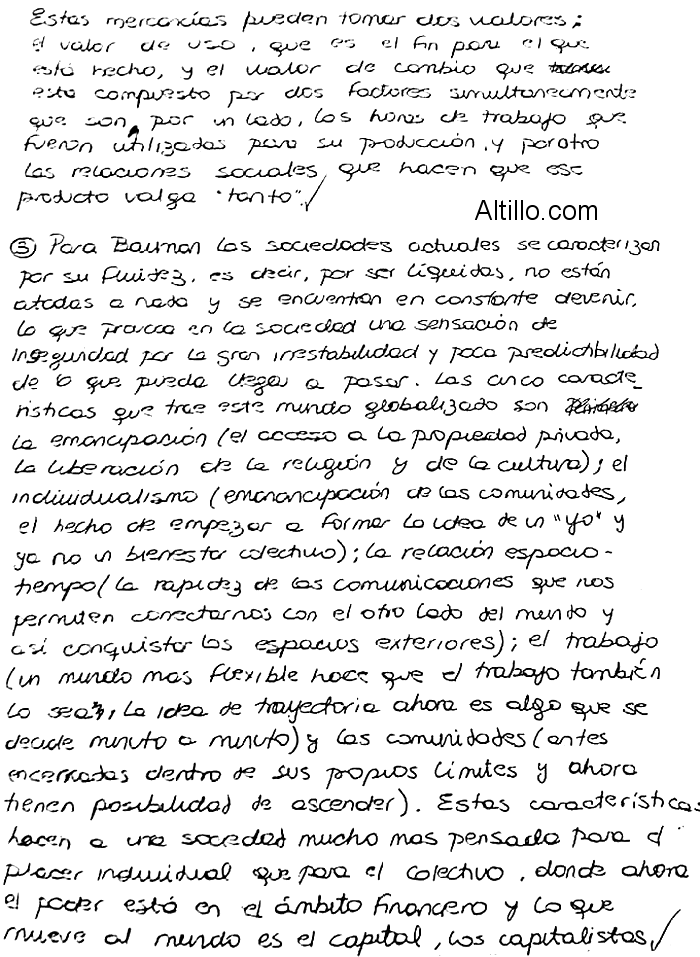 Estas mercancías pueden tomar dos valores;
el valor de uso, que es el fin para el que
está hecho, y el valor de cambio que
esta compuesto por dos factores simultaneamente
que son, por un lado, las horas de trabajo que
fueron utilizadas para su producción, y por otro
las relaciones sociales, que hacen que ese
producto valga "tanto".
Altillo.com
⑤ Para Bauman las sociedades actuales se caracterizan
por su fluidez, es decir, por ser líquidas, no están
atadas a nada y se encuentran en constante devenir,
lo que provoca en la sociedad una sensación de
inseguridad por la gran inestabilidad y poca predictibilidad
de lo que pueda llegar a pasar. Las cinco caracte_
rísticas que trae este mundo globalizado son
la emancipación (el acceso a la propiedad privada,
la liberación de la religión y de la cultura); el
individualismo (emanancipación de las comunidades,
el hecho de empezar a formar la idea de un "yo" y
ya no un bienestar colectivo); la relación espacio-
tiempo (la rapidez de las comunicaciones que nos
permiten conectarnos con el otro lado del mundo y
así conquistar los espacios exteriores); el trabajo
(un mundo mas flexible hace que el trabajo también
lo sea, la idea de trayectoria ahora es algo que se
decide minuto a minuto) y las comunidades (antes
encerradas dentro de sus propios límites y ahora
tienen posibilidad de ascender). Estas características
hacen a una sociedad mucho mas pensada para el
placer individual que para el colectivo, donde ahora
el poder está en el ámbito financiero y lo que
mueve al mundo es el capital, los capitalistas.